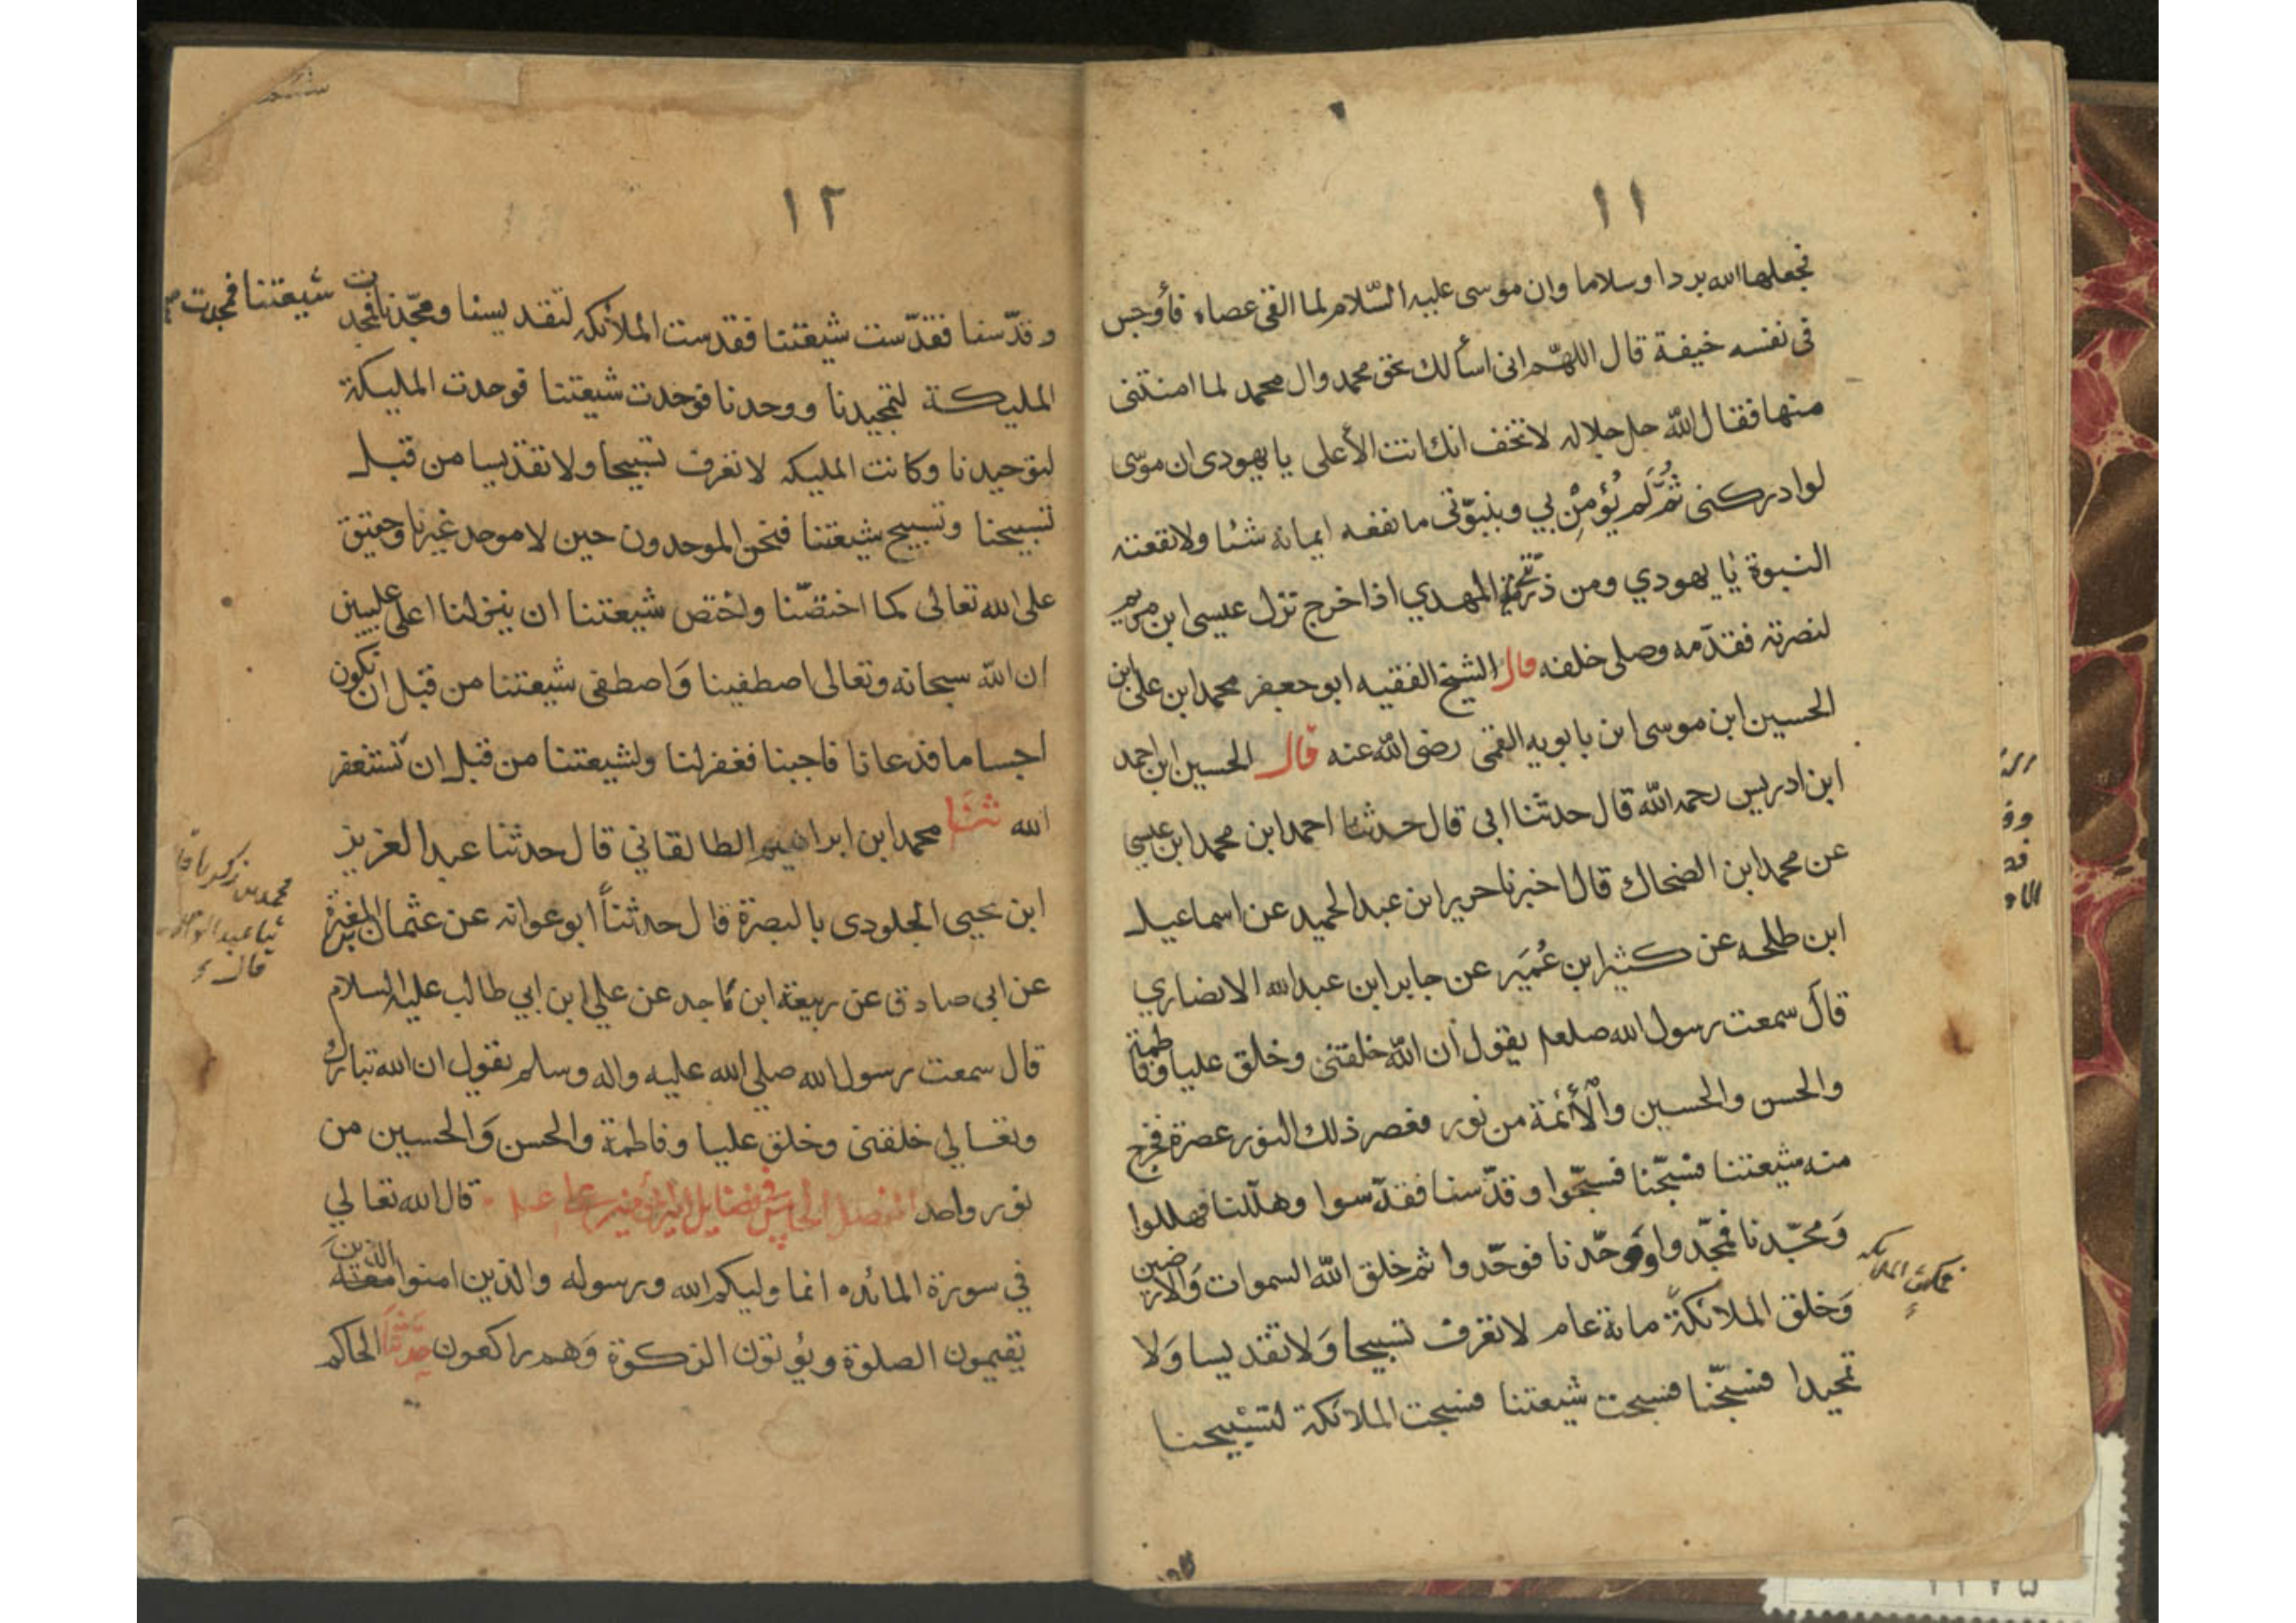 ١١
فجعلها الله بردا وسلاما وان موسى عليه السّلام لما القى عصاه فأوجس
فى نفسه خيفة قال اللهّم انى اسألك بحق محمد وال محمد لما امنتنى
منها فقال اللّه جل جلاله لا تخف انك انت الأعلى يا يهودى ان موسى
لو ادركنى ثُمَّ لَم يُؤمِنْ بي وبنبوّتى ما نفعه ايمانه شئا ولا نفعته
النبوة يا يهودي ومن ذرّيتى المهدي اذا خرج نزل عيسى ابن مريم
لنصرته فقدّمه وصلى خلفه قال الشيخ الفقيه ابو جعفر محمد ابن على ابن
الحسين ابن موسى ابن بابويه القمى رضى اللّه عنه قال الحسين ابن احمد
ابن ادريس رحمه اللّه قال حدثنا ابى قال حدثنا احمد ابن محمد ابن عيسى
عن محمد ابن الضحاك قال اخبرنا حرير ابن عبد الحميد عن اسماعيل
ابن طلحه عن كثير ابن عُمَير عن جابر ابن عبد الله الانصاري
قال سمعت رسول الله صلعم يقول ان اللّه خلقنى وخلق عليا وفاطمة
والحسن والحسين والْأَئمة من نور فعصر ذلك النور عصرة فخرج
منه شيعتنا فسبّحنا فسبّحوا وقدّسنا فقدّسوا وهلّلنا فهللوا
وَمجّدنا فمجّدوا ووحّدنا فوحّدوا ثم خلق اللّه السموات وَالارضين
وَخلق الملائكة مائة عام لا تعرف تسبيحا وَلا تقديسا وَلا
فمكثت الملائكه
تمجيدا فسبّحنا فسبحت شيعتنا فسبحت الملائكة لتسبيحنا
١٢
وقدّسنا فقدّست شيعتنا فقدست الملائكه لتقديسنا ومجّدنا فمجدت شيعتنا فمجدت
المليكة لتمجيدنا ووحدنا فوحدت شيعتنا فوحدت المليكة
لتوحيدنا وكانت المليكه لا تعرف تسبيحا ولا تقديسا من قبل
تسبيحنا وتسبيح شيعتنا فنحن الموحدون حين لا موحد غيرنا وحقيق
على الله تعالى كما اختصّنا واختص شيعتنا ان ينزلنا اعلى عليين
ان اللّه سبحانه وتعالى اصطفينا وَاصطفى شيعتنا من قبل ان نكون
اجساما فدعانا فاجبنا فغفر لنا ولشيعتنا من قبل ان نستغفر
الله ثنا محمد ابن ابراهيم الطالقاني قال حدثنا عبد العزيز
ابن يحيى الجلودى بالبصرة قال حدثناً ابو عوانه عن عثمان المغيرة
محمد بن زكريا
ثنا عبد الواحد
قال
عن ابى صادق عن ربيعة ابن ناجد عن علي ابن ابي طالب عليه السلام
قال سمعت رسول الله صلي الله عليه واله وسلم يقول ان الله تبارك
وتعالي خلقنى وخلق عليا وفاطمة والحسن وَالحسين من
نور واحد الفصل الخامس فى فضايل امير المؤمنين قال الله تعالي
في سورة المائده انما وليكم الله ورسوله والذين امنوا الذين
يقيمون الصلوة ويؤتون الزكوة وَهم راكعون حَدّثنَا الحاكم